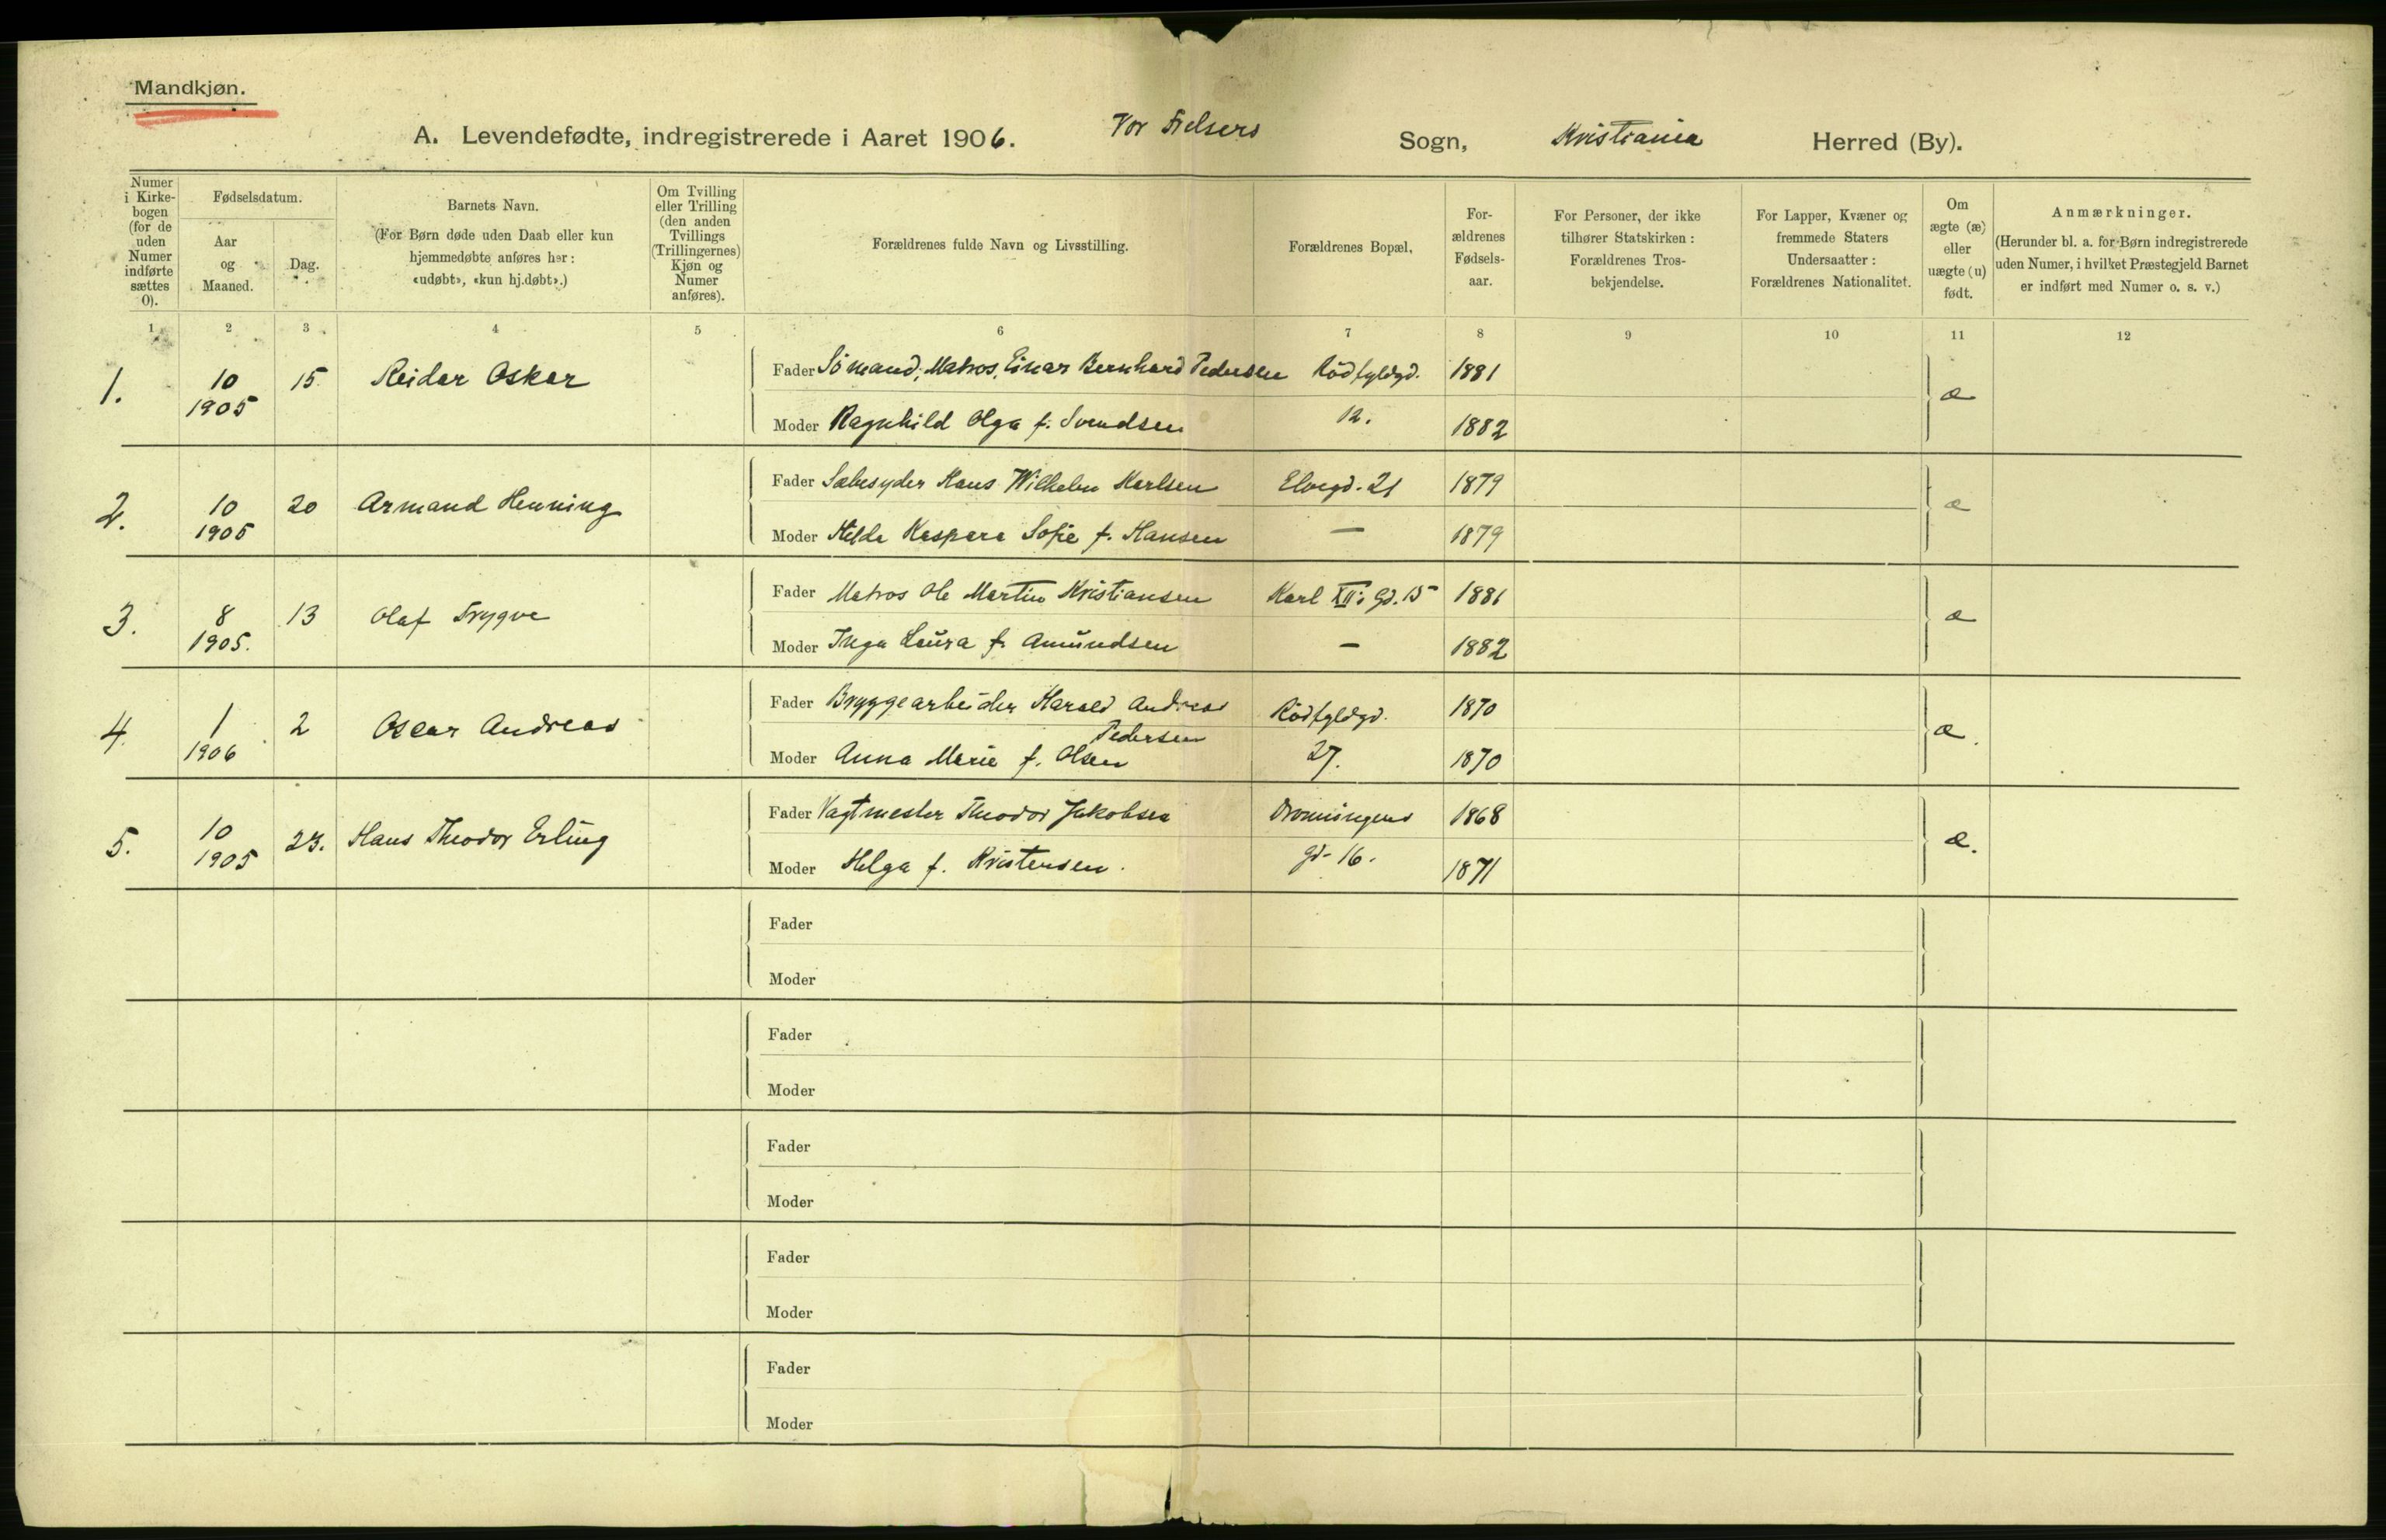 Mandkjøn.
A. Levendefødte, indregistrerede i Aaret 1906. Vor Frelsers Sogn, Kristiania Herred (By).
Numer i Kirke-bogen (for de uden Numer indførte sættes 0).
Fødselsdatum.
Aar og Maaned.
Dag.
Barnets Navn.
(For Børn døde uden Daab eller kun
hjemmedøbte anføres her:
«udøbt», «kun hj.døbt».)
Om Tvilling
eller Trilling
(den anden
Tvillings
(Trillingernes)
Kjøn og
Numer
anføres).
Forældrenes fulde Navn og Livsstilling.
Forældrenes Bopæl.
For-
ældrenes
Fødsels-
aar.
For Personer, der ikke
tilhører Statskirken:
Forældrenes Tros-
bekjendelse.
For Lapper, Kvæner og
fremmede Staters
Undersaatter:
Forældrenes Nationalitet.
Om
ægte (æ)
eller
uægte (u)
født.
Anmærkninger.
(Herunder bl. a. for Børn indregistrerede
uden Numer, i hvilket Præstegjeld Barnet
er indført med Numer o. s. v.)
1 2 3 4 5 6 7 8 9 10 11 12
1. 10 1905 15 Reidar Oskar Fader Sömand, Matros, Einar Bernhard Pedersen Rödfyldgd. 1881 æ
Moder Ragnhild Olga f. Svendsen 12. 1882
2. 10 1905 20 Armand Henning Fader Sæbesyder Hans Wilhelm Karlsen Elvegd. 21 1879 æ
Moder Hilda Kaspara Sofie f. Hansen — 1879
3. 8 1905. 13 Olaf Trygve Fader Matros Ole Martin Kristiansen Karl XII's Gd. 15 1881 æ
Moder Inga Laura f. Amundsen — 1882
4. 1 1906 2 Oscar Andreas Fader Bryggearbeider Harald Andreas Pedersen Rödfyldgd. 1870 æ.
Moder Anna Marie f. Olsen 27. 1870
5. 10 1905 23. Hans Theodor Erling Fader Vagtmester Theodor Jakobsen Dronningens 1868 æ.
Moder Helga f. Kristensen. gd. 16. 1871
Fader
Moder
Fader
Moder
Fader
Moder
Fader
Moder
Fader
Moder